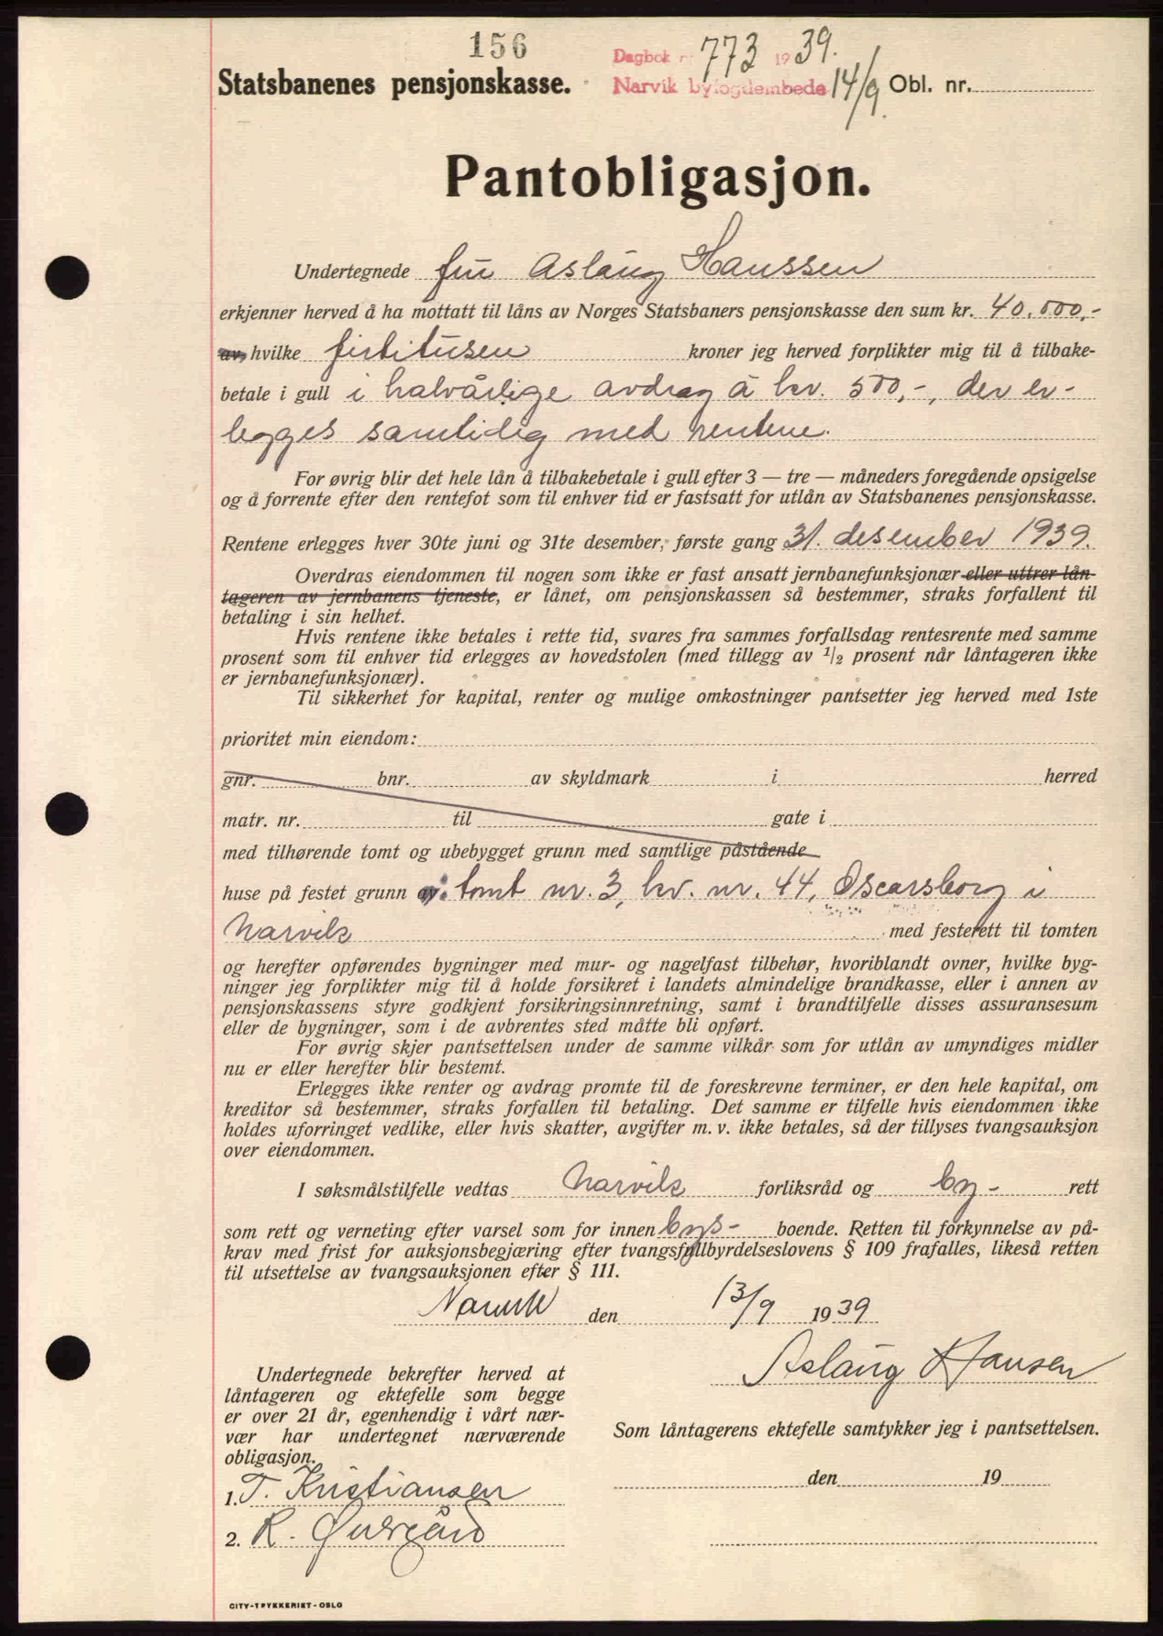 156
Dagbok nr 773 1939.
Statsbanenes pensjonskasse. Narvik byfogdembede 14/9. Obl. nr.
Pantobligasjon.
Undertegnede fru Aslaug Hanssen
erkjenner herved å ha mottatt til låns av Norges Statsbaners pensjonskasse den sum kr. 40.000,-
av hvilke firtitusen kroner jeg herved forplikter mig til å tilbake-
betale i gull i halvårlige avdrag à kr. 500,-, der er-
legges samtidig med rentene.
For øvrig blir det hele lån å tilbakebetale i gull efter 3 — tre — måneders foregående opsigelse
og å forrente efter den rentefot som til enhver tid er fastsatt for utlån av Statsbanenes pensjonskasse.
Rentene erlegges hver 30te juni og 31te desember, første gang 31. desember 1939.
Overdras eiendommen til nogen som ikke er fast ansatt jernbanefunksjonær eller uttrer lån-
tageren av jernbanens tjeneste, er lånet, om pensjonskassen så bestemmer, straks forfallent til
betaling i sin helhet.
Hvis rentene ikke betales i rette tid, svares fra sammes forfallsdag rentesrente med samme
prosent som til enhver tid erlegges av hovedstolen (med tillegg av 1/2 prosent når låntageren ikke
er jernbanefunksjonær).
Til sikkerhet for kapital, renter og mulige omkostninger pantsetter jeg herved med 1ste
prioritet min eiendom:
gnr. bnr. av skyldmark i herred
matr. nr. til gate i
med tilhørende tomt og ubebygget grunn med samtlige påstående
huse på festet grunn av: tomt nr. 3, kv. nr. 44, Oscarsborg i
Narvik med festerett til tomten
og herefter opførendes bygninger med mur- og nagelfast tilbehør, hvoriblandt ovner, hvilke byg-
ninger jeg forplikter mig til å holde forsikret i landets almindelige brandkasse, eller i annen av
pensjonskassens styre godkjent forsikringsinnretning, samt i brandtilfelle disses assuransesum
eller de bygninger, som i de avbrentes sted måtte bli opført.
For øvrig skjer pantsettelsen under de samme vilkår som for utlån av umyndiges midler
nu er eller herefter blir bestemt.
Erlegges ikke renter og avdrag promte til de foreskrevne terminer, er den hele kapital, om
kreditor så bestemmer, straks forfallen til betaling. Det samme er tilfelle hvis eiendommen ikke
holdes uforringet vedlike, eller hvis skatter, avgifter m. v. ikke betales, så der tillyses tvangsauksjon
over eiendommen.
I søksmålstilfelle vedtas Narvik forliksråd og by- rett
som rett og verneting efter varsel som for innen bys- boende. Retten til forkynnelse av på-
krav med frist for auksjonsbegjæring efter tvangsfullbyrdelseslovens § 109 frafalles, likeså retten
til utsettelse av tvangsauksjonen efter § 111.
Narvik den 13/9 1939
Aslaug Hansen
Undertegnede bekrefter herved at
låntageren og ektefelle som begge
er over 21 år, egenhendig i vårt nær-
vær har undertegnet nærværende
obligasjon.
Som låntagerens ektefelle samtykker jeg i pantsettelsen.
den 19
1. T. Kristiansen
2. R. Øvergård
CITY-TRYKKERIET - OSLO